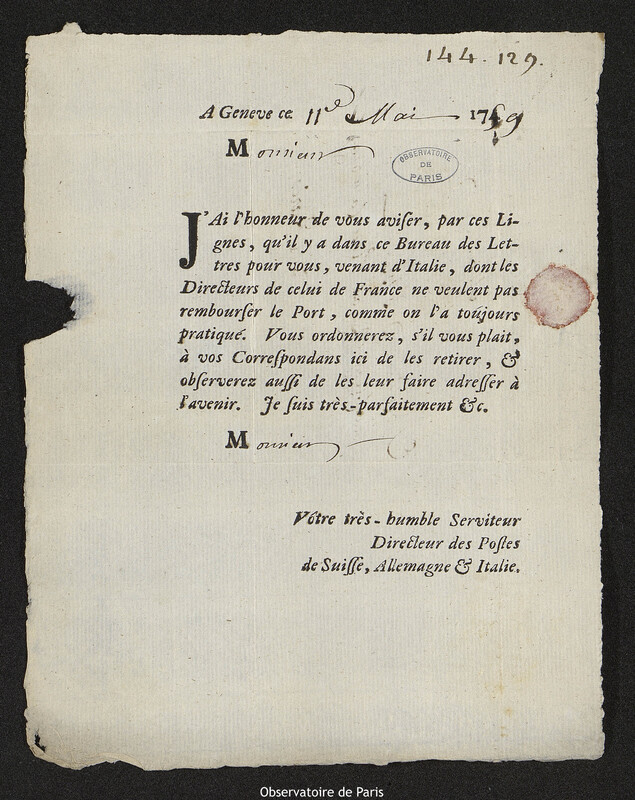 144. 129.
A Geneve ce 11e Mai 1759
Monsieur
OBSERVATOIRE
DE
PARIS
J'Ai l'honneur de vous aviſer, par ces Li-
gnes, qu'il y a dans ce Bureau des Let-
tres pour vous, venant d'Italie, dont les
Directeurs de celui de France ne veulent pas
rembourſer le Port, comme on l'a toûjours
pratiqué. Vous ordonnerez, s'il vous plait,
à vos Correſpondans ici de les retirer, &
obſerverez auſſi de les leur faire adreſſer à
l'avenir. Je ſuis très-parfaitement &c.
Monsieur
Vôtre très-humble Serviteur
Directeur des Poſtes
de Suiſſe, Allemagne & Italie.
Observatoire de Paris